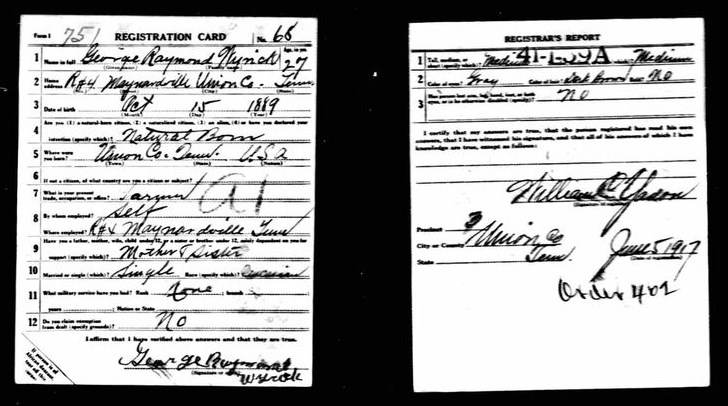 Form 1 751 REGISTRATION CARD No. 68
1 Name in full George Raymond Wyrick Age, in yrs. 27
(Given name) (Family name)
2 Home address R#4 Maynardville Union Co. Tenn.
(No.) (Street) (City) (State)
3 Date of birth Oct 15 1889
(Month) (Day) (Year)
4 Are you (1) a natural-born citizen, (2) a naturalized citizen, (3) an alien, (4) or have you declared your
intention (specify which)? Natural Born
5 Where were you born? Union Co. Tenn. U.S.A
(Town) (State) (Nation)
6 If not a citizen, of what country are you a citizen or subject?
7 What is your present trade, occupation, or office? Farmer
8 By whom employed? Self
Where employed? R#4 Maynardville Tenn
9 Have you a father, mother, wife, child under 12, or a sister or brother under 12, solely dependent on you for
support (specify which)? Mother & Sister
10 Married or single (which)? Single Race (specify which)?
11 What military service have you had? Rank None ; branch
years ; Nation or State
12 Do you claim exemption from draft (specify grounds)? NO
I affirm that I have verified above answers and that they are true.
George Raymond
Wyrick
(Signature or mark)
If person is of African descent, tear off this corner
REGISTRAR'S REPORT
41-1-39A
1 Tall, medium, or short (specify which)? Medium Medium
2 Color of eyes? Gray Color of hair? Dark Brown Bald? NO
3 Has person lost arm, leg, hand, foot, or both
eyes, or is he otherwise disabled (specify)? NO
I certify that my answers are true, that the person registered has read his own
answers, that I have witnessed his signature, and that all of his answers of which I have
knowledge are true, except as follows:
William C. Yadon
(Signature of registrar)
Precinct 3
City or County Union Co
State Tenn. June 5, 1917
(Date of registration)
Order 402